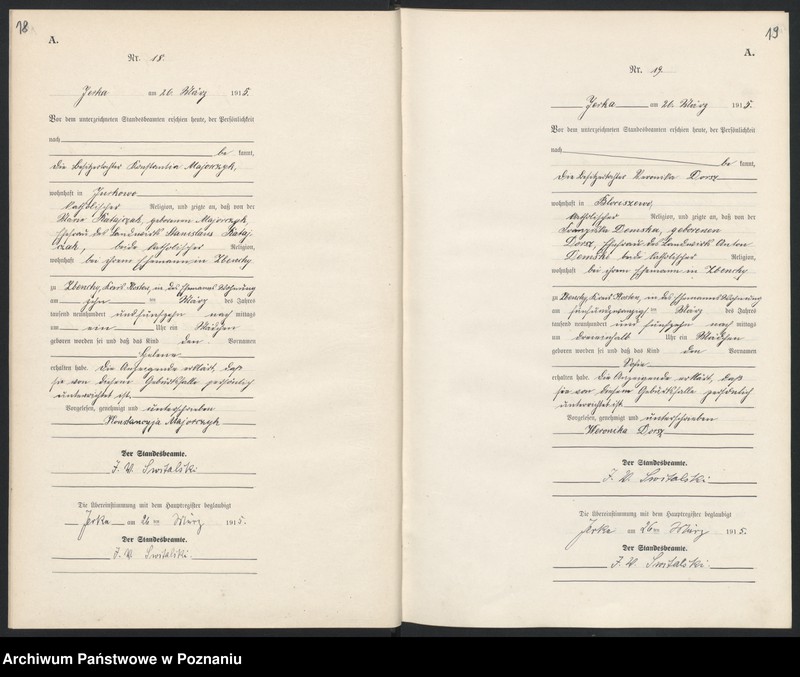 18
A.
Nr. 18.
Jerka am 26. März 1915.
Vor dem unterzeichneten Standesbeamten erschien heute, der Persönlichkeit
nach
be kannt,
die Besitzertochter Konstantia Majorczyk,
wohnhaft in Jurkowo
katholischer Religion, und zeigte an, daß von der
Maria Ratajczak, geborenen Majorczyk,
Ehefrau des Landwirt Stanislaus Rataj-
czak, beide katholischer Religion,
wohnhaft bei ihrem Ehemanne in Zbenchy
zu Zbenchy, Kreis Kosten, in des Ehemannes Wohnung
am zehn ten März des Jahres
tausend neunhundert und fünfzehn nach mittags
um ein Uhr ein Mädchen
geboren worden sei und daß das Kind den Vornamen
Helene
erhalten habe. Die Anzeigende erklärt, daß
sie von diesem Geburtsfalle persönlich
unterrichtet ist.
Vorgelesen, genehmigt und unterschrieben
Konstancyja Majorczyk
Der Standesbeamte.
J. V. Switalski
Die Übereinstimmung mit dem Hauptregister beglaubigt
Jerka am 26ten März 1915.
Der Standesbeamte.
J. V. Switalski.
19
A.
Nr. 19.
Jerka am 26. März 1915.
Vor dem unterzeichneten Standesbeamten erschien heute, der Persönlichkeit
nach
be kannt,
die Besitzertochter Veronika Dorsz
wohnhaft in
katholischer Religion, und zeigte an, daß von der
Franziska Domska, geborenen
Dorsz, Ehefrau des Landwirt Anton
Domski beide katholischer Religion,
wohnhaft bei ihrem Ehemann in Zbenchy
zu Zbenchy, Kreis Kosten, in des Ehemannes Wohnung
am fünfundzwanzigsten März des Jahres
tausend neunhundert und fünfzehn nach mittags
um dreieinhalb Uhr ein Mädchen
geboren worden sei und daß das Kind den Vornamen
Sofie
erhalten habe. Die Anzeigende erklärt, daß
sie von diesem Geburtsfalle persönlich
unterrichtet ist.
Vorgelesen, genehmigt und unterschrieben
Weronika Dorsz
Der Standesbeamte.
J. V. Switalski.
Die Übereinstimmung mit dem Hauptregister beglaubigt
Jerka am 26ten März 1915.
Der Standesbeamte.
J. V. Switalski.
Archiwum Państwowe w Poznaniu